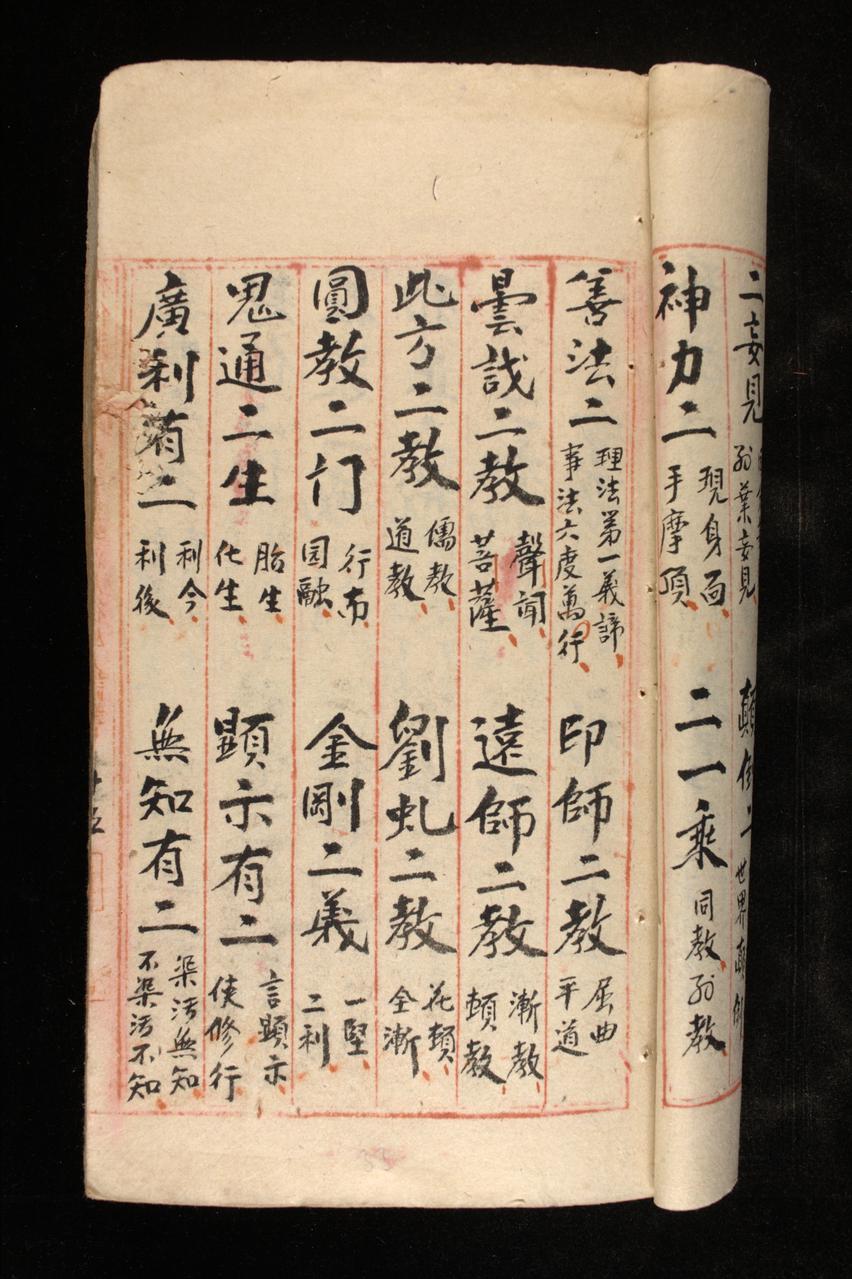 二妄見 別業妄見 顛倒二 世界顛倒
神力二 現身面 手摩頂 二一乘 同教 別教
善法二 理法第一義諦 事法六度萬行 印師二教 屈曲 平道
曇䜟二教 聲聞 菩薩 遠師二教 漸教 頓教
此方二教 儒教 道教 劉虬二教 花頓 全漸
圓教二门 行布 园融 金剛二義 一堅 二利
鬼通二生 胎生 化生 顕示有二 言顕示 使修行
廣利有二 利今 利後 無知有二 染污無知 不染污不知